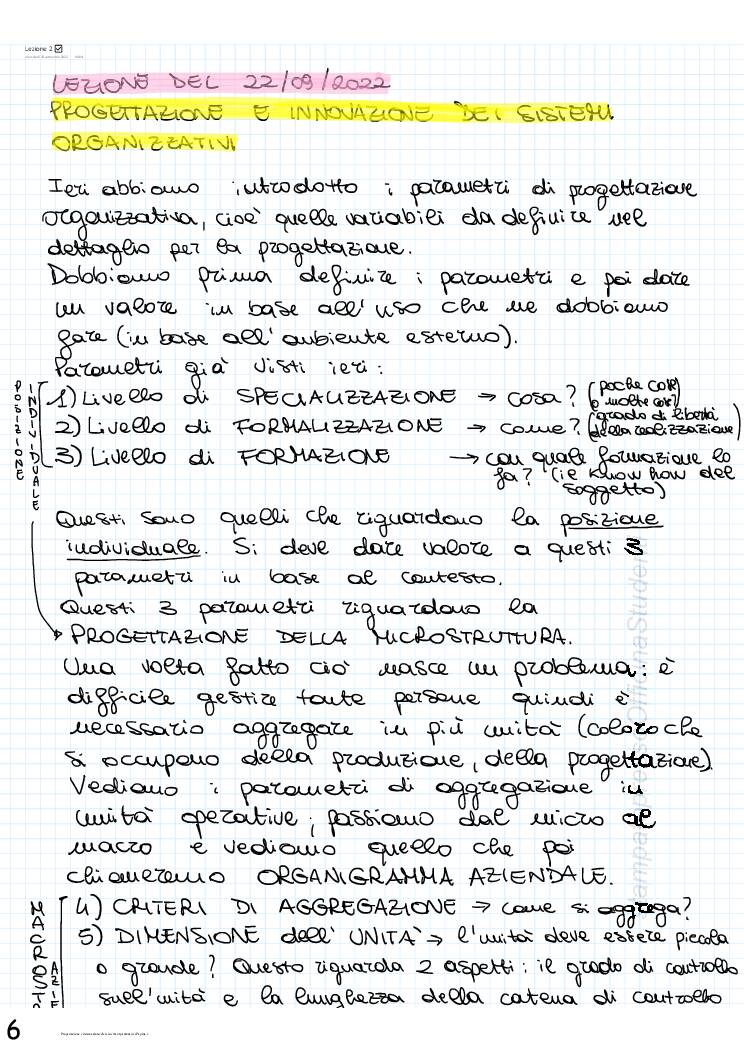 Lezione 2
LEZIONE DEL 22/09/2022
PROGETTAZIONE E INNOVAZIONE DEI SISTEMI
ORGANIZZATIVI
Ieri abbiamo introdotto i parametri di progettazione
organizzativa, cioè quelle variabili da definire nel
dettaglio per la progettazione.
Dobbiamo prima definire i parametri e poi dare
un valore in base all'uso che ne dobbiamo
fare (in base all'ambiente esterno).
Parametri già visti ieri:
POSIZIONE INDIVIDUALE
1) Livello di SPECIALIZZAZIONE → cosa? (poche cose o molte cose)
2) Livello di FORMALIZZAZIONE → come? (grado di libertà della realizzazione)
3) Livello di FORMAZIONE → con quale formazione lo
fa? (ie know how del
soggetto)
Questi sono quelli che riguardano la posizione
individuale. Si deve dare valore a questi 3
parametri in base al contesto.
Questi 3 parametri riguardano la
PROGETTAZIONE DELLA MICROSTRUTTURA.
Una volta fatto ciò nasce un problema: è
difficile gestire tante persone quindi è
necessario aggregare in più unità (coloro che
si occupano della produzione, della progettazione).
Vediamo i parametri di aggregazione in
unità operative; passiamo dal micro al
macro e vediamo quello che poi
chiameremo ORGANIGRAMMA AZIENDALE.
MACROST
AZIE
4) CRITERI DI AGGREGAZIONE → come si aggrega?
5) DIMENSIONE dell'UNITÀ → l'unità deve essere piccola
o grande? Questo riguarda 2 aspetti: il grado di controllo
sull'unità e la lunghezza della catena di controllo
6